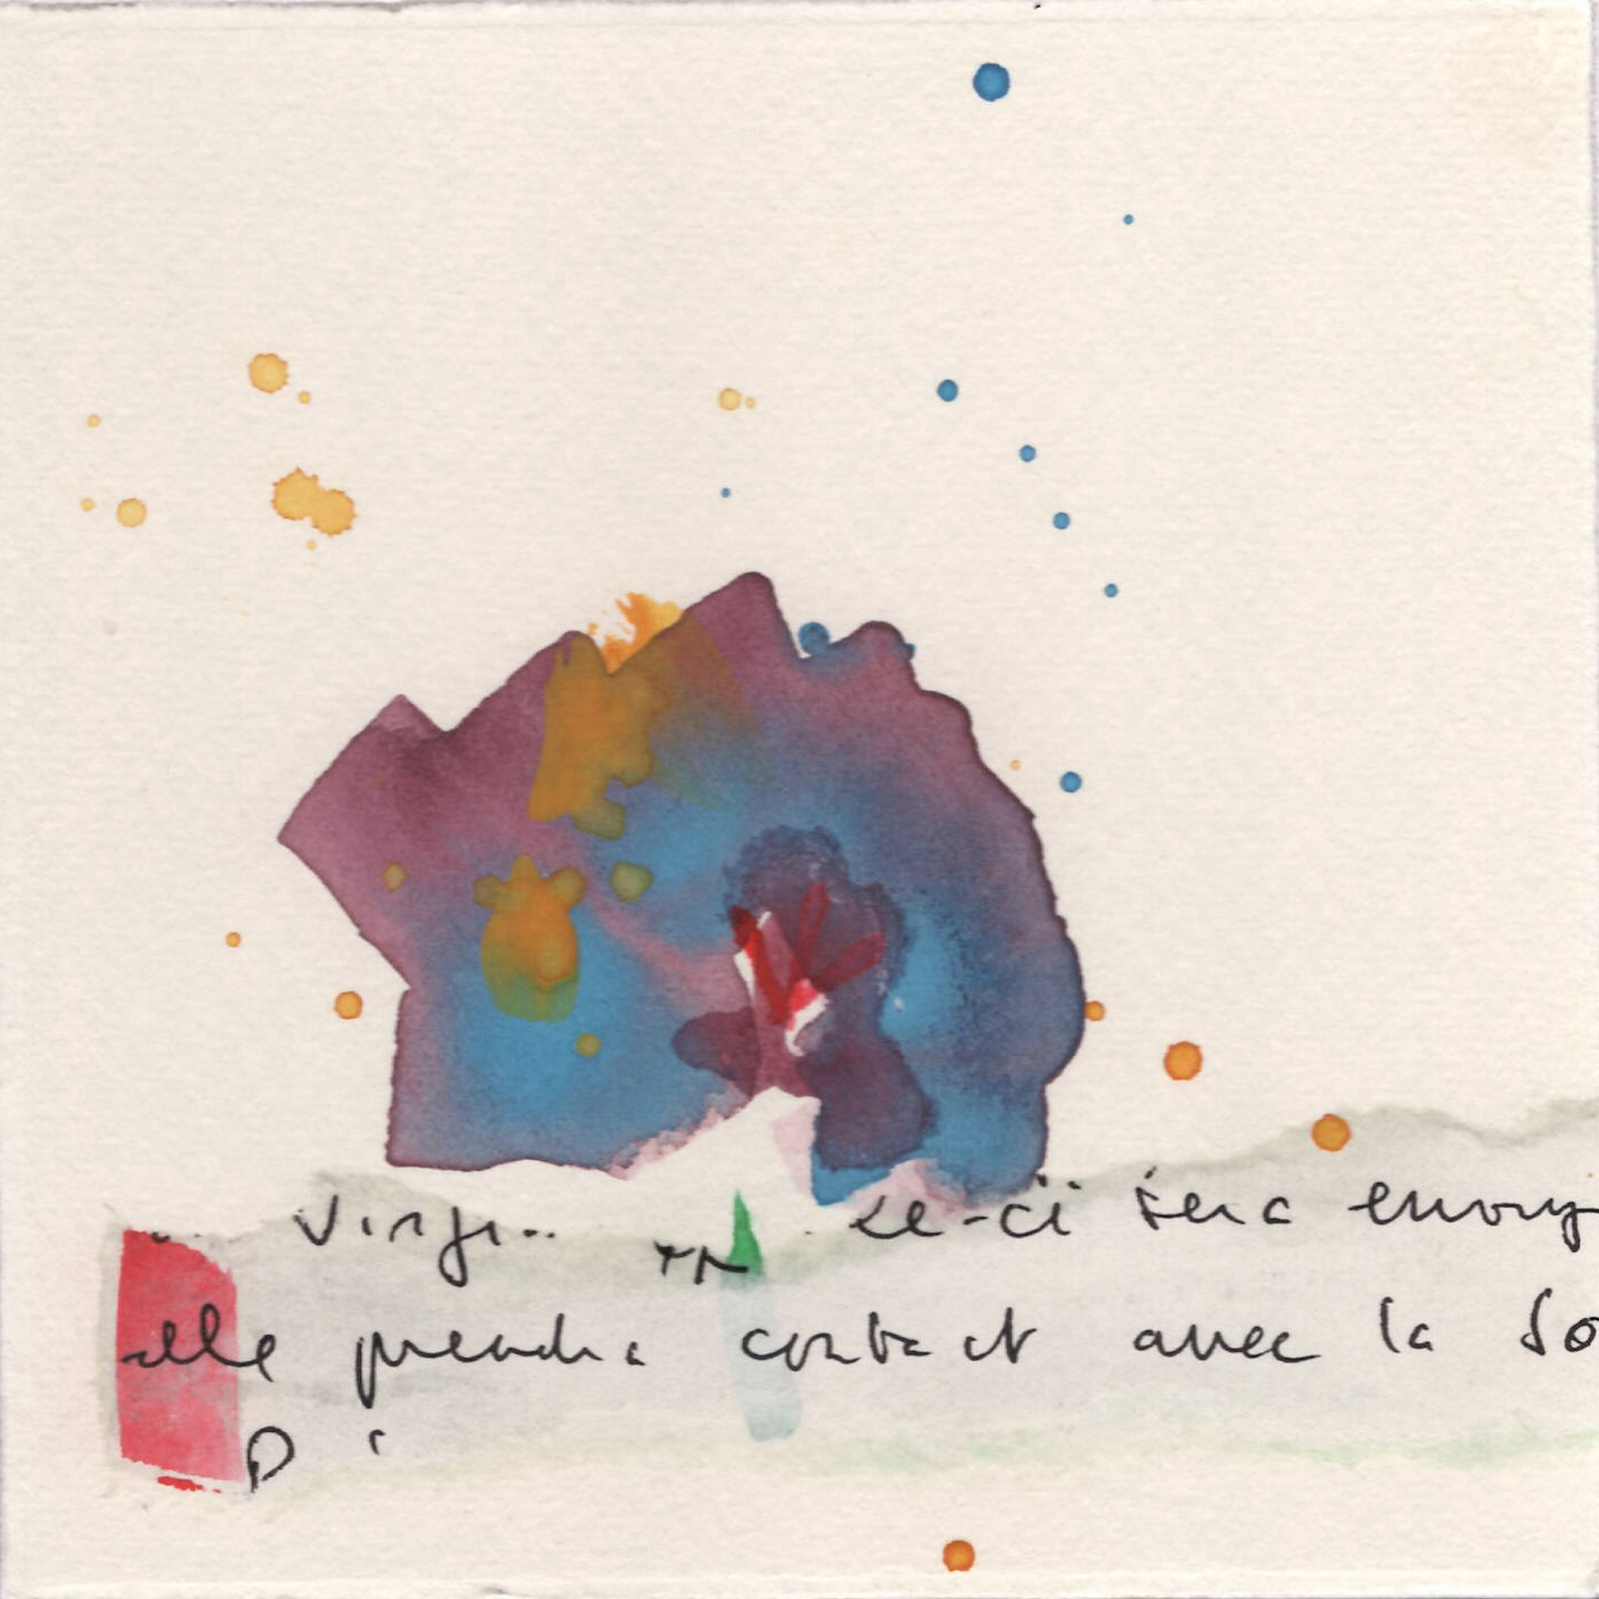 Virgi
le-ci sera envoy
elle prendra contact avec la So
D